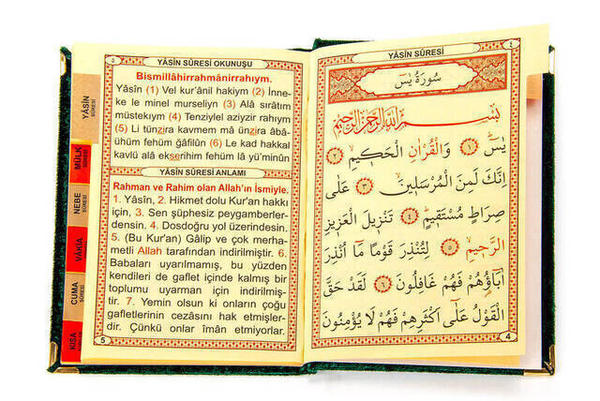 ٥
YÂSİN SÛRESİ OKUNUŞU
Bismillâhirrahmânirrahıym.
Yâsîn (1) Vel kur'ânil hakiym (2) İnne-
ke le minel murseliyn (3) Alâ sırâtım
müstekıym (4) Tenziylel aziyzir rahıym
(5) Li tünzira kavmem mâ ünzira âbâ-
ühüm fehüm ğâfilûn (6) Le kad hakkal
kavlü alâ ekserihim fehüm lâ yü'minûn
YÂSİN SÛRESİ ANLAMI
Rahman ve Rahim olan Allah'ın İsmiyle.
1. Yâsîn, 2. Hikmet dolu Kur'an hakkı
için, 3. Sen şüphesiz peygamberler-
densin. 4. Dosdoğru yol üzerindesin.
5. (Bu Kur'an) Gâlip ve çok merha-
metli Allah tarafından indirilmiştir. 6.
Babaları uyarılmamış, bu yüzden
kendileri de gaflet içinde kalmış bir
toplumu uyarman için indirilmiş-
tir. 7. Yemin olsun ki onların çoğu
gafletlerinin cezasını hak etmişler-
dir. Çünkü onlar îmân etmiyorlar.
5
YÂSİN
SÛRESİ
MÜLK
SÛRESİ
NEBE
SÛRESİ
VÂKIA
SÛRESİ
CUMA
SÛRESİ
KISA
YÂSİN SÛRESİ
٤
سُورَةُ يٰسٓ
بِسْمِ اللّٰهِ الرَّحْمٰنِ الرَّحِيمِ
يٰسٓ ﴿١﴾ وَالْقُرْاٰنِ الْحَكِيمِ ﴿٢﴾
اِنَّكَ لَمِنَ الْمُرْسَلِينَ ﴿٣﴾ عَلٰى
صِرَاطٍ مُسْتَقِيمٍ ﴿٤﴾ تَنْزِيلَ الْعَزِيزِ
الرَّحِيمِ ﴿٥﴾ لِتُنْذِرَ قَوْمًا مَٓا اُنْذِرَ
اٰبَٓاؤُ۬هُمْ فَهُمْ غَافِلُونَ ﴿٦﴾ لَقَدْ حَقَّ
الْقَوْلُ عَلٰٓى اَكْثَرِهِمْ فَهُمْ لَا يُؤْمِنُونَ
4